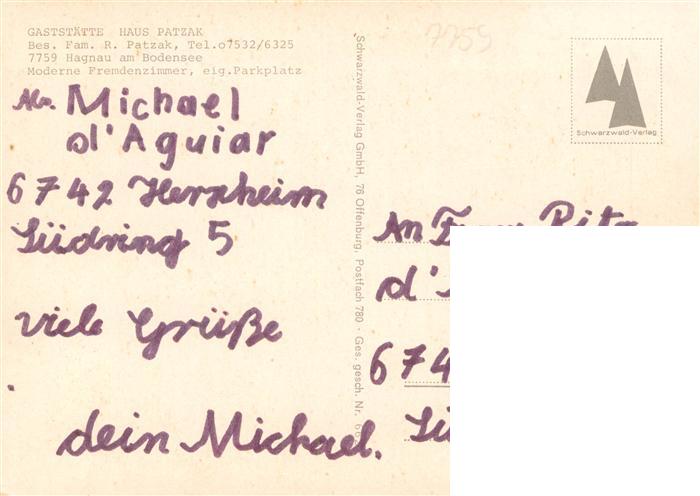 GASTSTÄTTE HAUS PATZAK
Bes. Fam. R. Patzak, Tel.o7532/6325
7759 Hagnau am Bodensee
Moderne Fremdenzimmer, eig.Parkplatz
Abs. Michael
d'Aguiar
6742 Herxheim
Südring 5
viele Grüße
dein Michael.
Schwarzwald-Verlag GmbH, 76 Offenburg, Postfach 780 · Ges. gesch. Nr.
7759
Schwarzwald-Verlag
An
d'
674